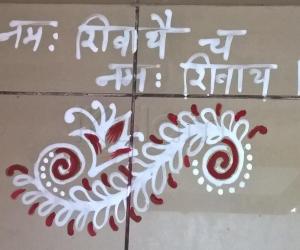 नमः शिवायै च
नमः शिवाय ।